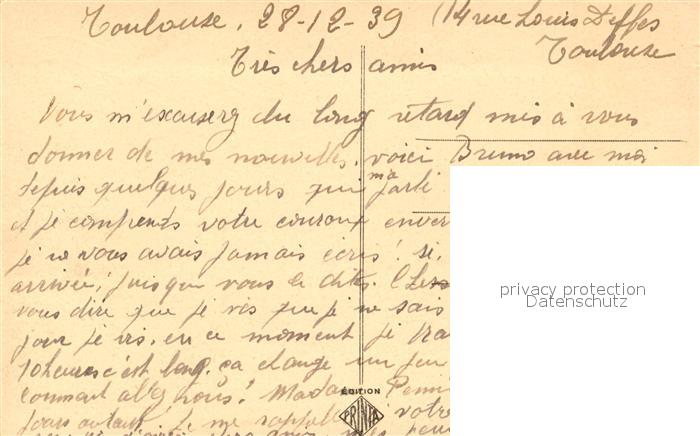 Toulouse. 28-12-39 (14 rue Louis Deffes
Toulouse
Très chers amis
Vous m'excuserez du long retard mis à vous
donner de mes nouvelles. voici Bruno avec moi
depuis quelques jours qui m'a parlé
et je comprends votre couroux enver
je ne vous avais jamais écris! si,
arrivée, puisque vous le dites.
vous dire que je vis que je ne sais
jour je vis. en ce moment je tra
10 heures c'est long. ça change un peu
comment allez vous? Madame
jours autant! Je me rappelle votre
privacy protection
Datenschutz
ÉDITION
PRINTA